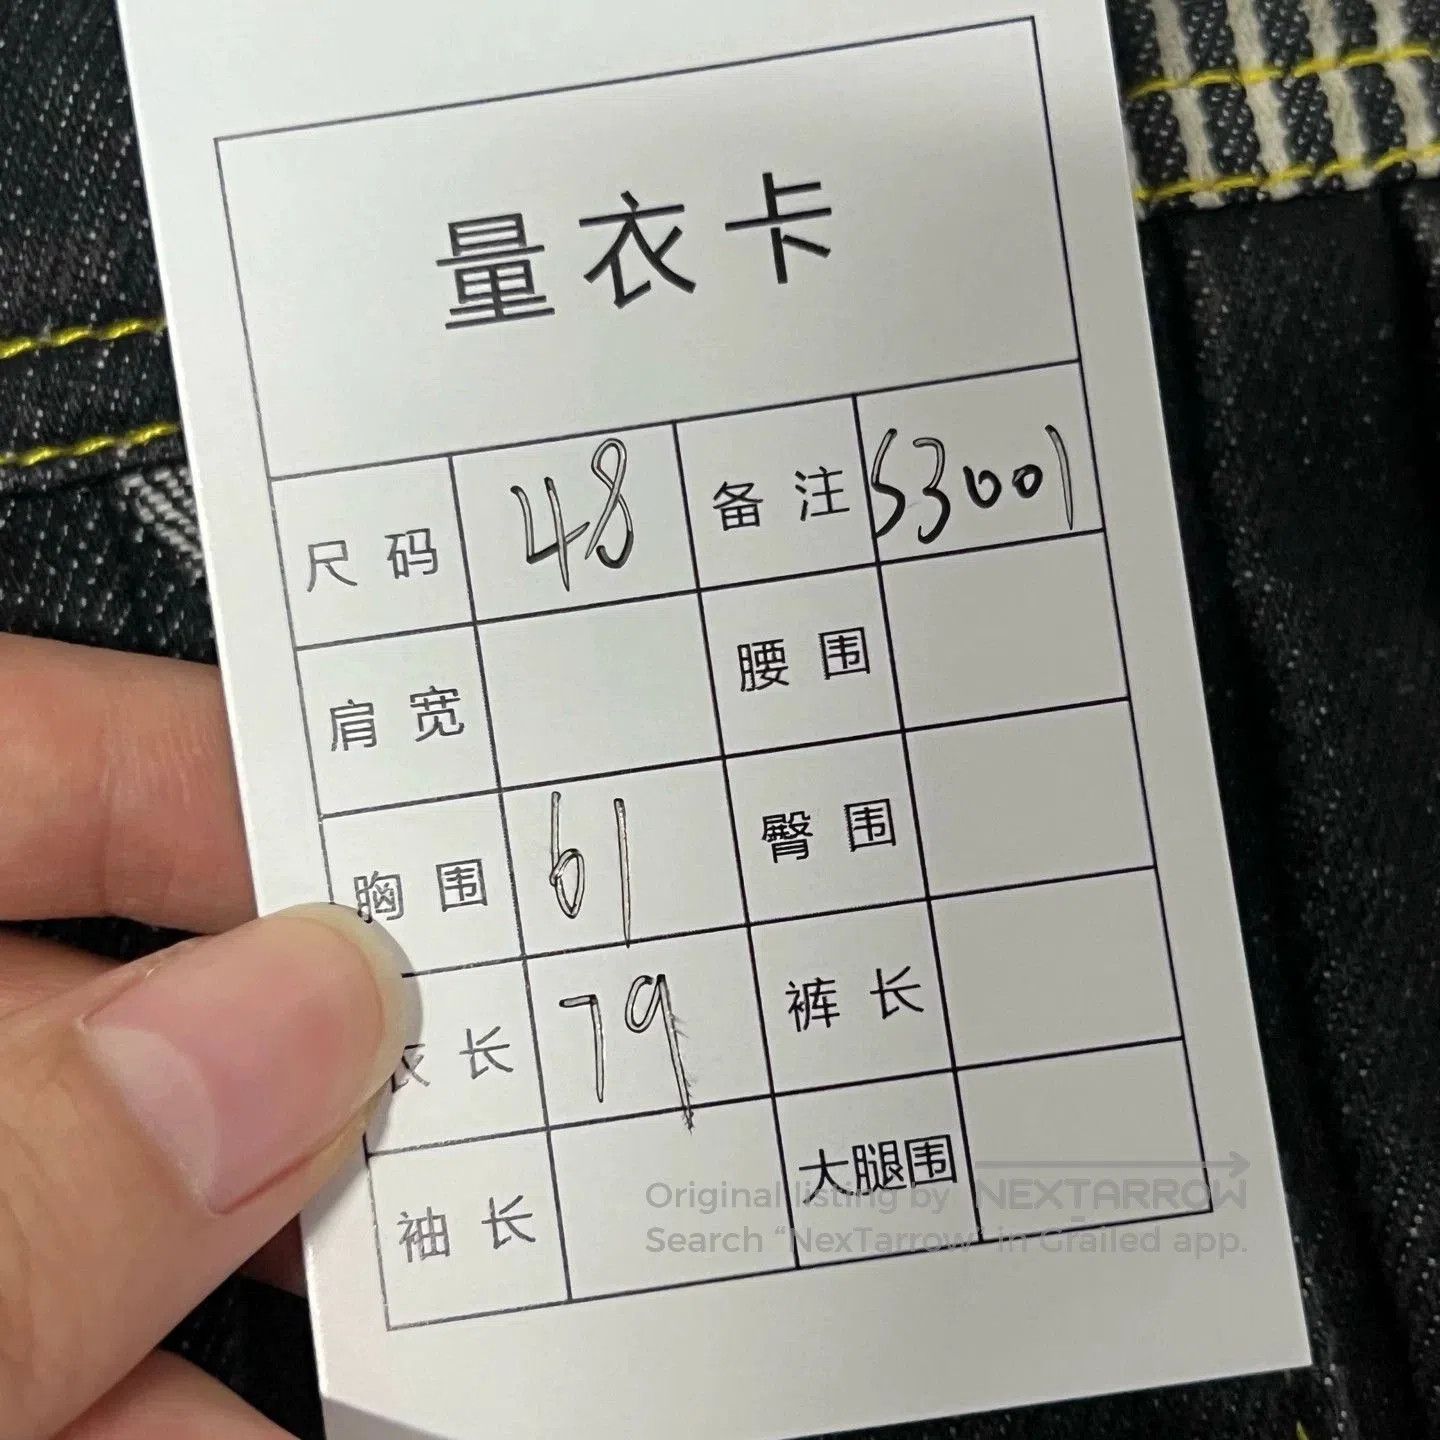 量衣卡
尺码 48 备注 S3001
肩宽 腰围
胸围 61 臀围
衣长 79 裤长
袖长 大腿围
Original listing by NEXTARROW
Search “NexTarrow” in Grailed app.